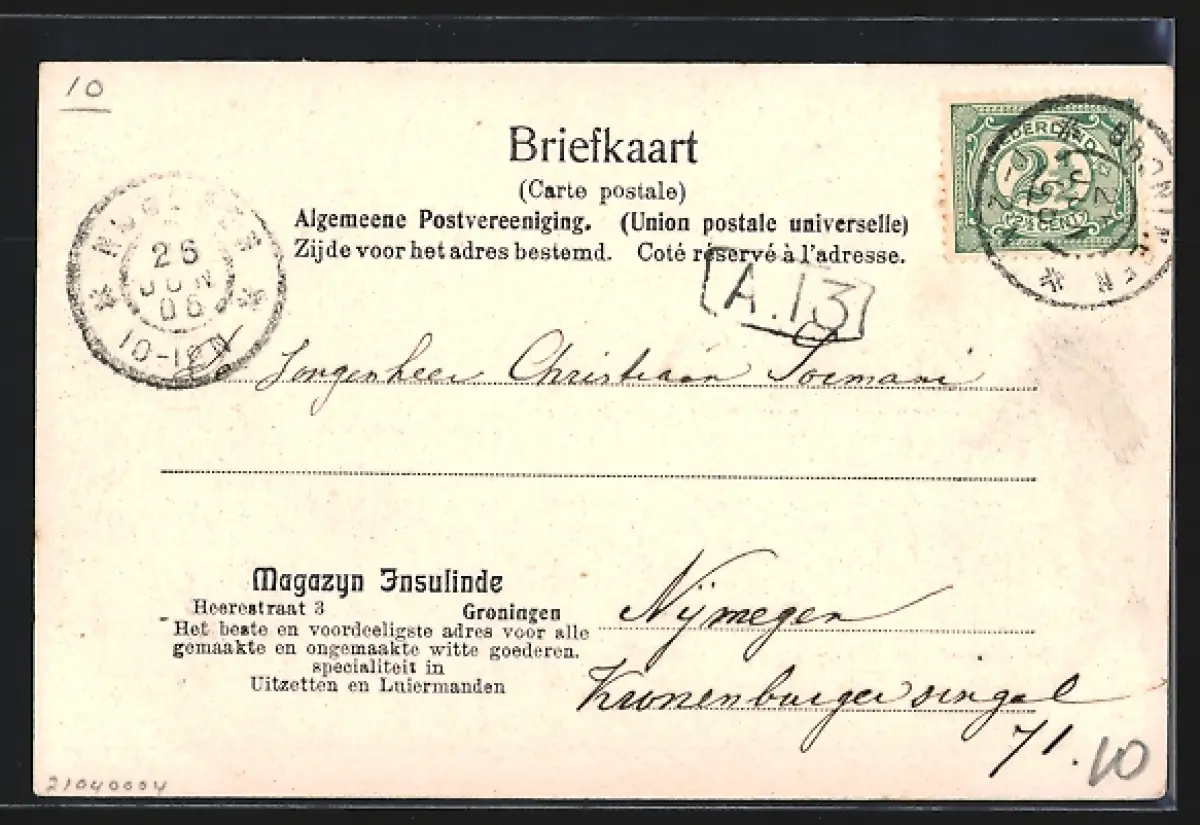 10
Briefkaart
(Carte postale)
Algemeene Postvereeniging. (Union postale universelle)
Zijde voor het adres bestemd. Coté réservé à l'adresse.
2½ CENT
26
JUN
06
10-12N
A.13
Jongenheer Christiaan
Magazyn Insulinde
Heerestraat 3 Groningen
Het beste en voordeeligste adres voor alle
gemaakte en ongemaakte witte goederen.
specialiteit in
Uitzetten en Luiermanden
Nijmegen
Kronenburgersingel
71.
10
21040004